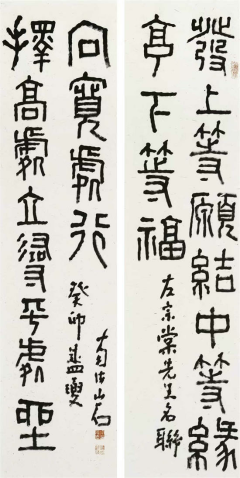 發上等願結中等緣
享下等福
左宗棠先生名聯
擇高處立尋平處坐
向寬處行
癸卯